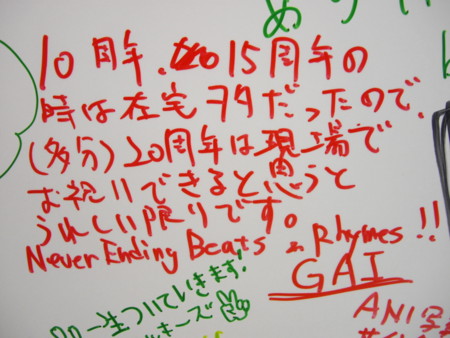 10周年、15周年の
時は在宅ヲタだったので、
(多分)20周年は現場で
お祝いできると思うと
うれしい限りです。
Never Ending Beats n Rhymes!!
GAI
一生ついていきます!
キーズ
ANI写